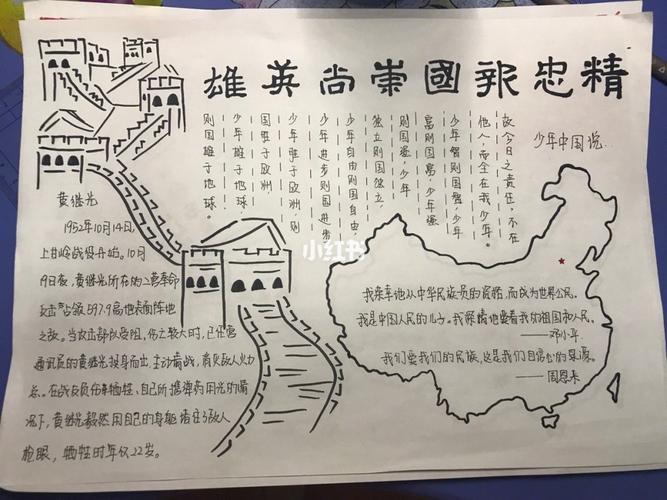 精忠报國崇尚英雄
少年中国说
故今日之责任，不在
他人，而全在我少年。
少年智则国智，少年
富则国富，少年强
则国强，少年
独立则国独立，
少年自由则国自由，
少年进步则国进步
少年胜于欧洲，则
国胜于欧洲，
少年雄于地球，
则国雄于地球。
黄继光
1952年10月14日，
上甘岭战役开始。10月
19日夜，黄继光所在的二营奉命
攻击占领597.9高地表面阵地
之敌。当攻击部队受阻，伤亡较大时，已任营
通讯员的黄继光挺身而出，主动请战，消灭敌人火力
点。在战友负伤牺牲、自己所携弹药用光的情
况下，黄继光毅然用自己的身躯堵住了敌人
枪眼，牺牲时年仅22岁。
我荣幸地从中华民族一员的资格，而成为世界公民。
我是中国人民的儿子。我深情地爱着我的祖国和人民。
——邓小平
我们爱我们的民族，这是我们自信心的泉源。
——周恩来
小红书